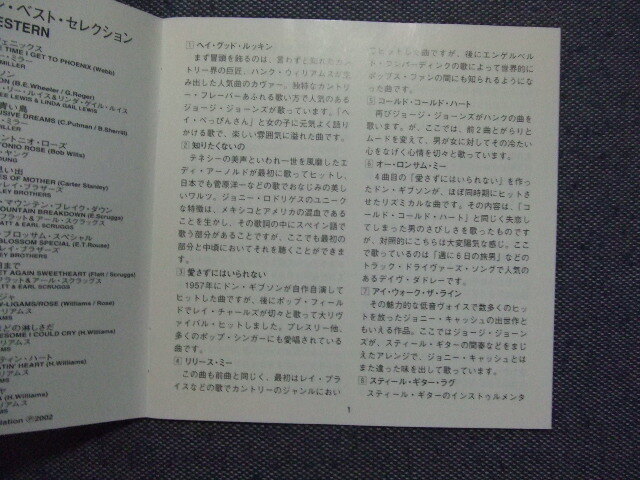 ン・ベスト・セレクション
ESTERN
ェニックス
TIME I GET TO PHOENIX (Webb)
MILLER
ノン
ON (B.E.Wheeler / G.Roger)
リー・ルイス&リンダ・ゲイル・ルイス
EE LEWIS & LINDA GAIL LEWIS
青い鳥
USIVE DREAMS (C.Putman / B.Sherrill)
・ミラー
MILLER
ントニオ・ローズ
TONIO ROSE (Bob Wills)
・ヤング
OUNG
思い出
TS OF MOTHER (Carter Stanley)
レイ・ブラザーズ
EY BROTHERS
・マウンテン・ブレイク・ダウン
OUNTAIN BREAKDOWN (E.Scruggs)
フラット&アール・スクラッグス
ATT & EARL SCRUGGS
ブロッサム・スペシャル
LOSSOM SPECIAL (E.T.Rouse)
レイ・ブラザーズ
EY BROTHERS
日まで
T AGAIN SWEETHEART (Flatt / Scruggs)
フラット&アール・スクラッグス
ATT & EARL SCRUGGS
ジャ
W-LIGAMS/ROSE (Williams / Rose)
リアムス
AMS
ほどの淋しさだ
ESOME I COULD CRY (H.Williams)
リアムス
AMS
ティン・ハート
ATIN' HEART (H.Williams)
リアムス
AMS
ャ
(H.Williams)
リアムス
MS
ilation ℗2002
1 ヘイ・グッド・ルッキン
まず冒頭を飾るのは、言わずと知れたカン
トリー界の巨匠、ハンク・ウィリアムスが生
み出した人気曲のカヴァー。独特なカントリ
ー・フレーバーあふれる歌い方で人気のある
ジョージ・ジョーンズが歌っています。「ヘ
イ・べっぴんさん」と女の子に元気よく語り
かける歌で、楽しい雰囲気に溢れた曲です。
2 知りたくないの
テネシーの美声といわれ一世を風靡したエ
ディ・アーノルドが最初に歌ってヒットし、
日本でも菅原洋一などの歌でおなじみの美し
いワルツ。ジョニー・ロドリゲスのユニーク
な特徴は、メキシコとアメリカの混血である
ことを生かし、その歌詞の中にスペイン語で
歌う部分があることですが、ここでも最初の
部分と中頃においてそれを聴くことができま
す。
3 愛さずにはいられない
1957年にドン・ギブソンが自作自演して
ヒットした曲ですが、後にポップ・フィール
ドでレイ・チャールズが切々と歌って大リヴ
ァイバル・ヒットしました。プレスリー他、
多くのポップ・シンガーにも愛唱されている
曲です。
4 リリース・ミー
この曲も前曲と同じく、最初はレイ・プラ
イスなどの歌でカントリーのジャンルにおい
てヒットした曲ですが、後にエンゲルベル
ト・フンパーディンクの歌によって世界的に
ポップス・ファンの間にも知られるようにな
った曲です。
5 コールド・コールド・ハート
再びジョージ・ジョーンズがハンクの曲を
歌います。が、ここでは、前2曲とがらりと
ムードを変えて、男が女に対してその冷たい
心をなげく心情を切々と歌っています。
6 オー・ロンサム・ミー
4曲目の「愛さずにはいられない」を作っ
たドン・ギブソンが、ほぼ同時期にヒットさ
せたリズミカルな曲です。その内容は、「コ
ールド・コールド・ハート」と同じく失恋し
てしまった男のさびしさを歌ったものです
が、対照的にこちらは大変陽気な感じ。ここ
で歌っているのは「週に6日の旅男」などの
トラック・ドライヴァーズ・ソングで人気の
あるデイヴ・ダドレーです。
7 アイ・ウォーク・ザ・ライン
その魅力的な低音ヴォイスで数多くのヒッ
トを放ったジョニー・キャッシュの出世作と
もいえる作品。ここではジョージ・ジョーン
ズが、スティール・ギターの間奏などをまじ
えたアレンジで、ジョニー・キャッシュとは
また違った味を出して歌っています。
8 スティール・ギター・ラグ
スティール・ギターのインストゥルメンタ
1